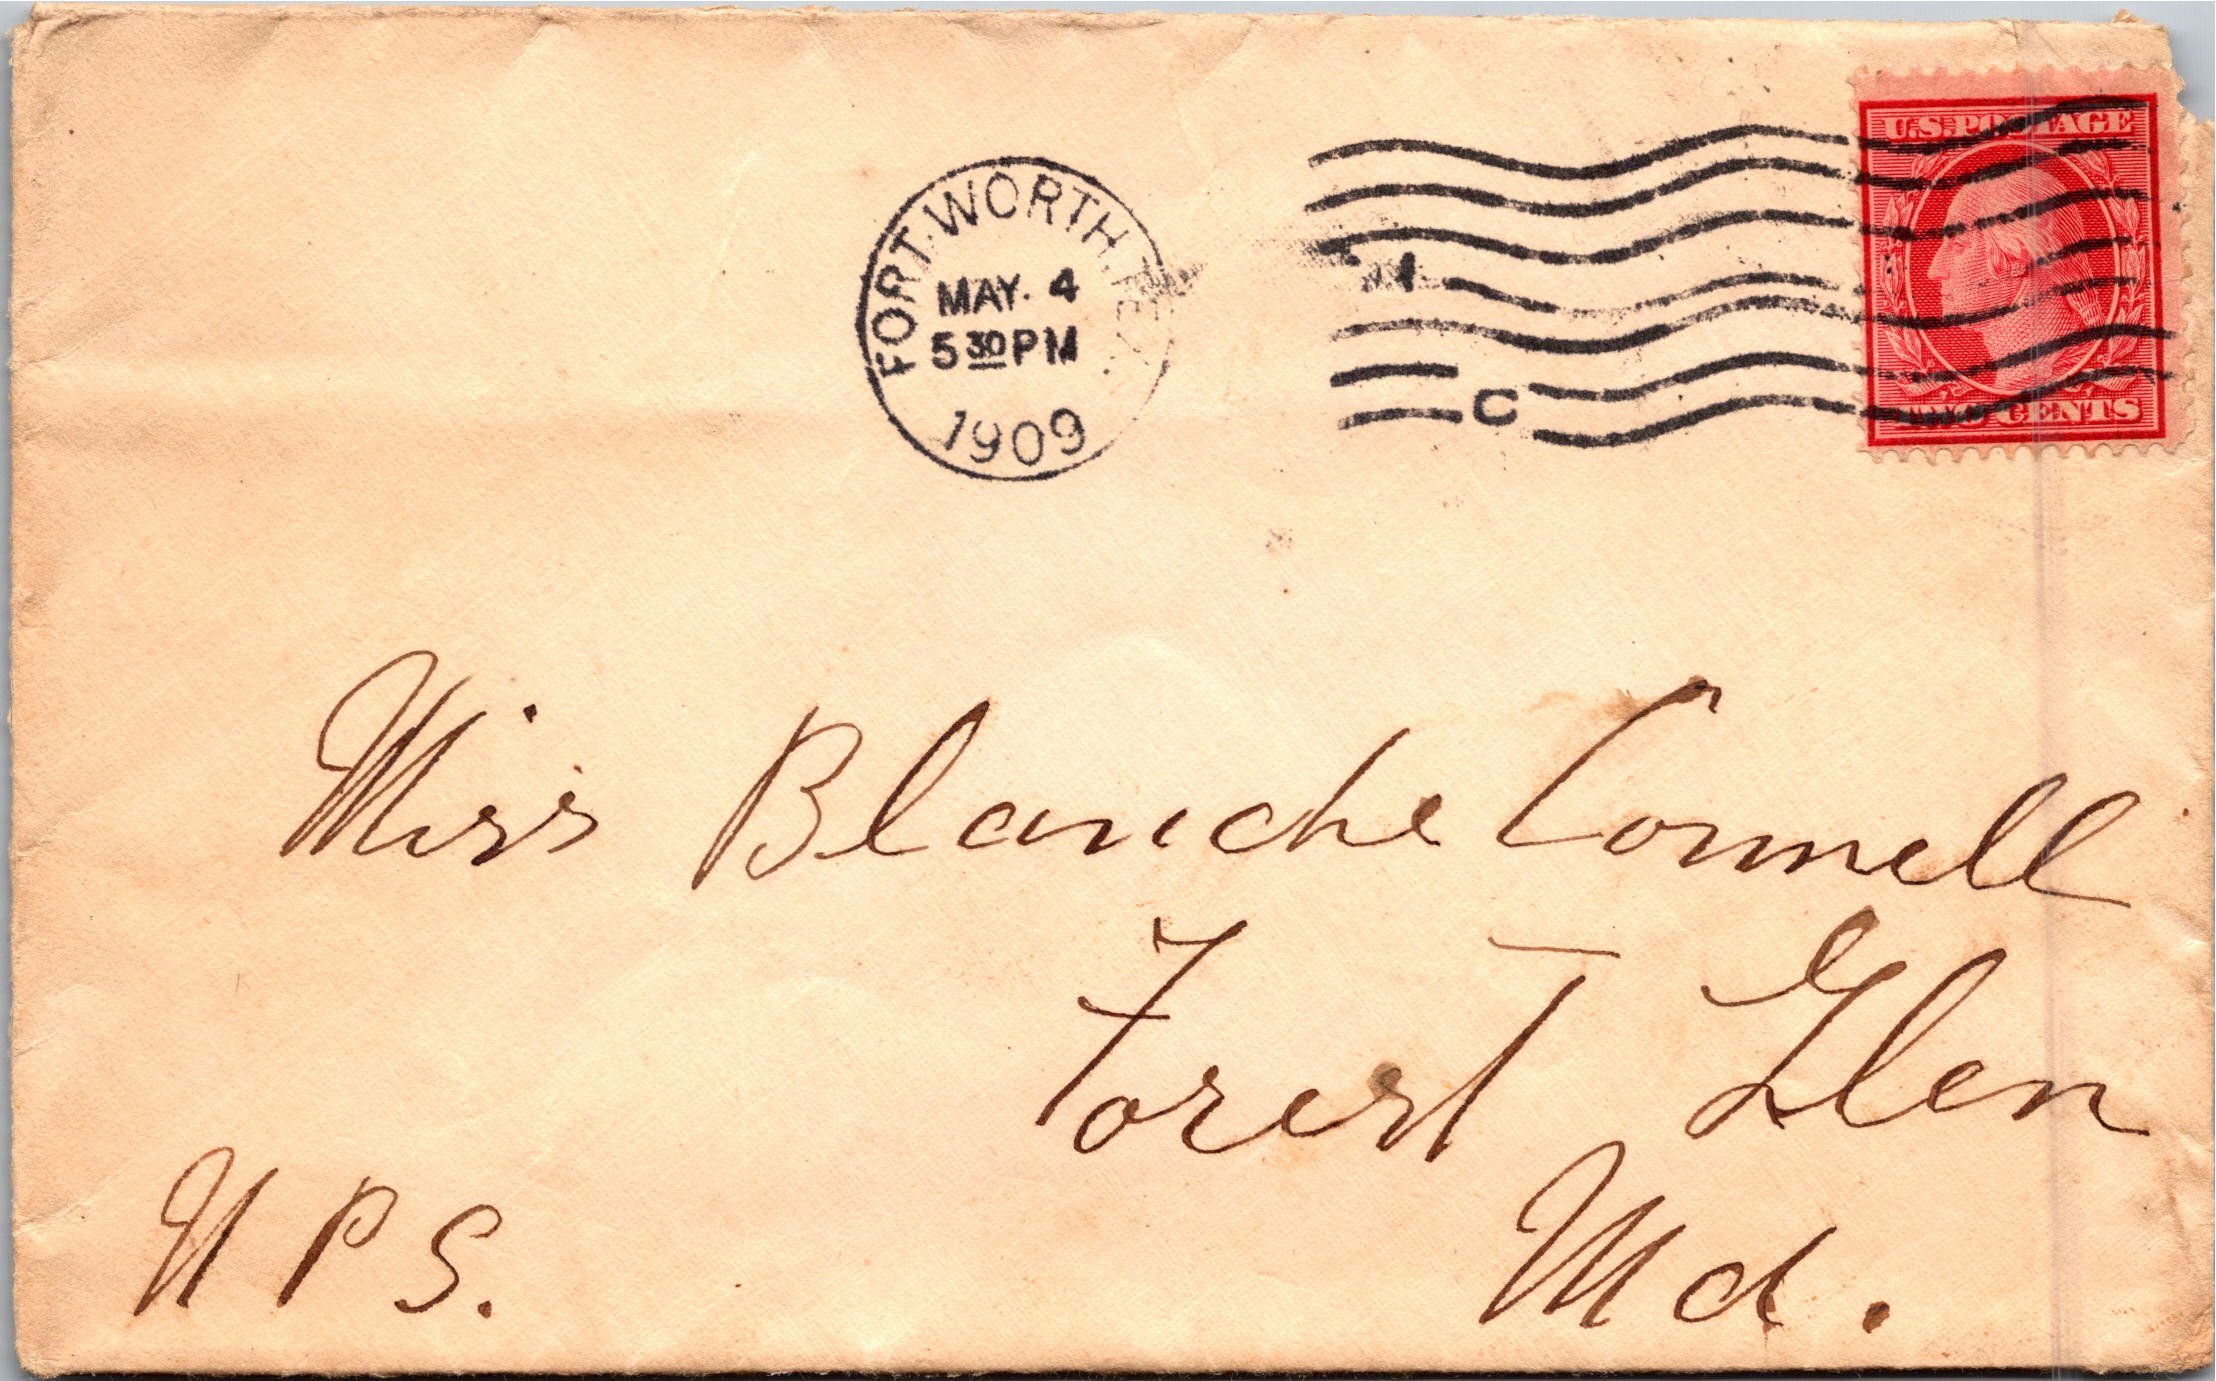 FORT WORTH, TEX.
MAY. 4
5 30 PM
1909
C
U.S. POSTAGE
TWO CENTS
Miss Blanche Connell
Forest Glen
Md.
N P S.